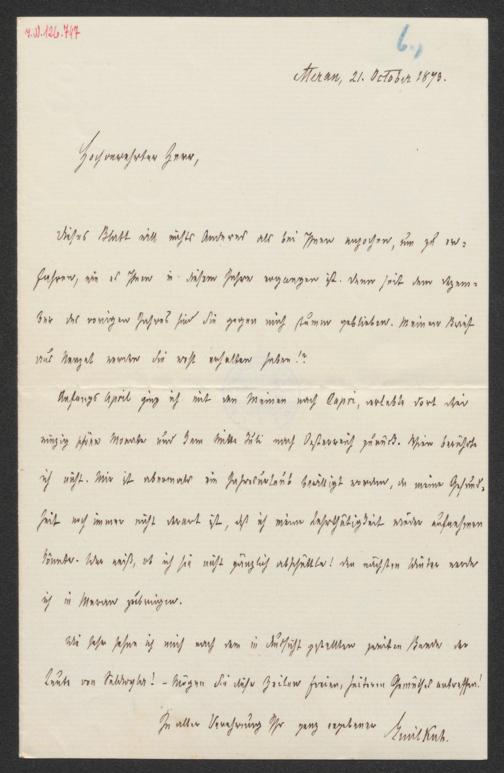 I.N. 126.747
6.,
Meran, 21. October 1873.
Hochverehrter Herr,
Dieses Blatt will nichts Anderes als bei Ihnen anpochen, um zu er-
fahren, wie es Ihnen in diesem Jahre ergangen ist. Denn seit dem Dezem-
ber des vorigen Jahres sind Sie gegen mich stumm geblieben. Meinen Brief
aus Neapel werden Sie wohl erhalten haben!?
Anfangs April ging ich mit den Meinen nach Capri, verlebte dort drei
einzig schöne Monate und kam Mitte Juli nach Oesterreich zurück. Wien berührte
ich nicht. Mir ist abermals ein Jahresurlaub bewilligt worden, da meine Gesund-
heit noch immer nicht derart ist, daß ich meine Lehrthätigkeit wieder aufnehmen
könnte. Wer weiß, ob ich sie nicht gänzlich abschüttle! Den nächsten Winter werde
ich in Meran zubringen.
Wie sehr sehne ich mich nach dem in Aussicht gestellten zweiten Bande der
Leute von Seldwyla! – Mögen Sie diese Zeilen freien, heiteren Gemüthes antreffen!
In aller Verehrung Ihr ganz ergebener
Emil Kuh.